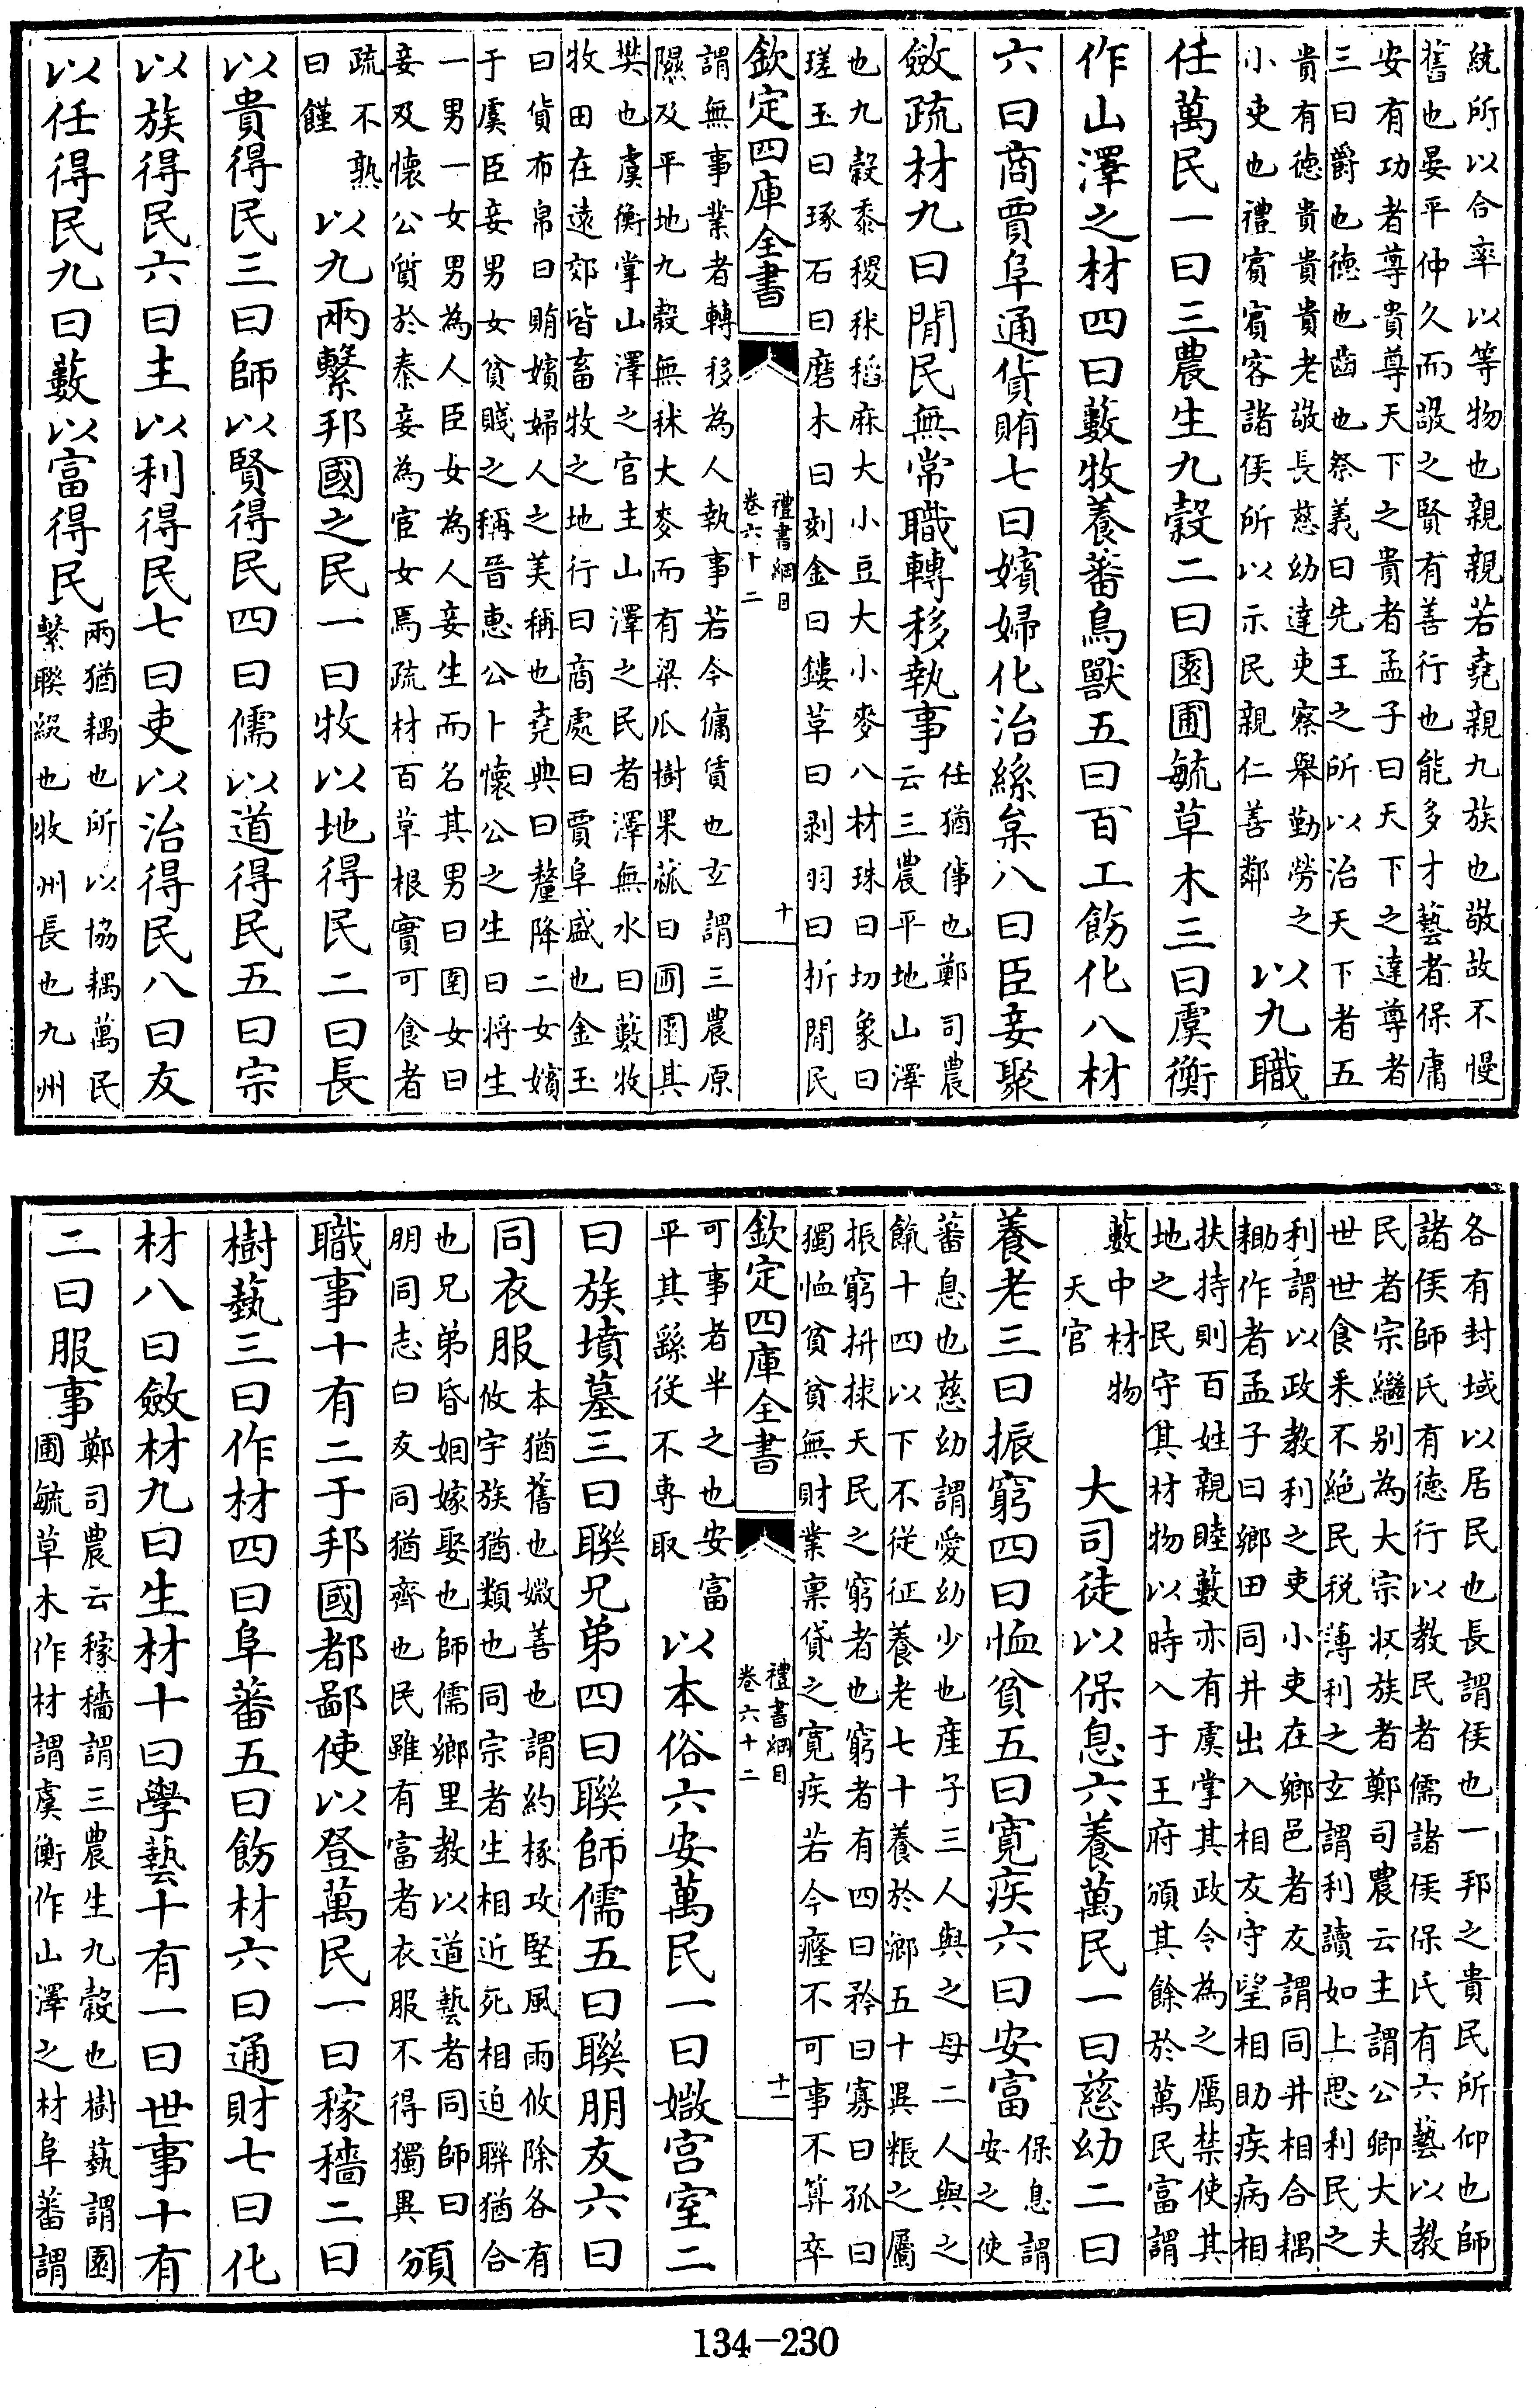 統所以合率以等物也親親若堯親九族也敬故不慢
舊也晏平仲久而敬之賢有善行也能多才藝者保庸
安有功者尊貴尊天下之貴者孟子曰天下之達尊者
三曰爵也德也齒也祭義曰先王之所以治天下者五
貴有德貴貴貴老敬長慈幼達吏察舉勤勞之
小吏也禮賓賓客諸侯所以示民親仁善鄰
以九職
任萬民一曰三農生九穀二曰園圃毓草木三曰虞衡
作山澤之材四曰藪牧養蕃鳥獸五曰百工飭化八材
六曰商賈阜通貨賄七曰嬪婦化治絲枲八曰臣妾聚
斂疏材九曰閒民無常職轉移執事
任猶倳也鄭司農
云三農平地山澤
也九穀黍稷秫稻麻大小豆大小麥八材珠曰切象曰
瑳玉曰琢石曰磨木曰刻金曰鏤草曰剥羽曰析閒民
欽定四庫全書
禮書綱目
卷六十二
十
謂無事業者轉移為人執事若今傭賃也玄謂三農原
隰及平地九穀無秫大麥而有粱苽樹果蓏曰圃園其
樊也虞衡掌山澤之官主山澤之民者澤無水曰藪牧
牧田在遠郊皆畜牧之地行曰商處曰賈阜盛也金玉
曰貨布帛曰賄嬪婦人之美稱也堯典曰釐降二女嬪
于虞臣妾男女貧賤之稱晉惠公卜懷公之生曰将生
一男一女男為人臣女為人妾生而名其男曰圉女曰
妾及懷公質於秦妾為宦女焉疏材百草根實可食者
疏不熟
曰饉
以九兩繫邦國之民一曰牧以地得民二曰長
以貴得民三曰師以賢得民四曰儒以道得民五曰宗
以族得民六曰主以利得民七曰吏以治得民八曰友
以任得民九曰藪以富得民
兩猶耦也所以協耦萬民
繫聯綴也牧州長也九州
各有封域以居民也長謂侯也一邦之貴民所仰也師
諸侯師氏有德行以教民者儒諸侯保氏有六藝以教
民者宗繼别為大宗收族者鄭司農云主謂公卿大夫
世世食釆不絶民税薄利之玄謂利讀如上思利民之
利謂以政教利之吏小吏在鄉邑者友謂同井相合耦
耡作者孟子曰鄉田同井出入相友守望相助疾病相
扶持則百姓親睦藪亦有虞掌其政令為之厲禁使其
地之民守其材物以時入于王府頒其餘於萬民富謂
藪中材物
天官
大司徒以保息六養萬民一曰慈幼二曰
養老三曰振窮四曰恤貧五曰寛疾六曰安富
保息謂
安之使
蕃息也慈幼謂愛幼少也産子三人與之母二人與之
餼十四以下不從征養老七十養於鄉五十異粻之屬
振窮拼捄天民之窮者也窮者有四曰矜曰寡曰孤曰
獨恤貧貧無財業禀貸之寛疾若今癃不可事不算卒
欽定四庫全書
禮書綱目
卷六十二
十一
可事者半之也安富
平其繇從不専取
以本俗六安萬民一曰媺宫室二
曰族墳墓三曰聯兄弟四曰聯師儒五曰聯朋友六曰
同衣服
本猶舊也媺善也謂約椓攻堅風雨攸除各有
攸宇族猶類也同宗者生相近死相迫聯猶合
也兄弟昏姻嫁娶也師儒鄉里教以道藝者同師曰
朋同志曰友同猶齊也民雖有富者衣服不得獨異
頒
職事十有二于邦國都鄙使以登萬民一曰稼穡二曰
樹蓺三曰作材四曰阜蕃五曰飭材六曰通財七曰化
材八曰斂材九曰生材十曰學藝十有一曰世事十有
二曰服事
鄭司農云稼穡謂三農生九穀也樹蓺謂園
圃毓草木作材謂虞衡作山澤之材阜蕃謂
134-230